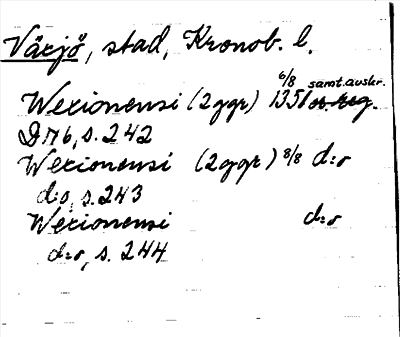 Växjö, stad, Kronob. l.
6/8 samt. avskr.
Wexionensi (2 ggr) 1351 or. reg.
DM6, s. 242
Wexionensi (2 ggr) 8/8 d:o
d:o, s. 243
Wexionensi d:o
d:o, s. 244